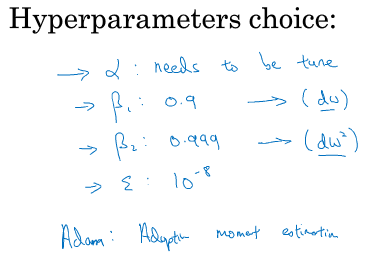 Hyperparameters choice:
→ α : needs to be tune
→ β₁ : 0.9 → (dw)
→ β₂ : 0.999 → (dw²)
→ ε : 10⁻⁸
Adam : Adaptin momet estimatin